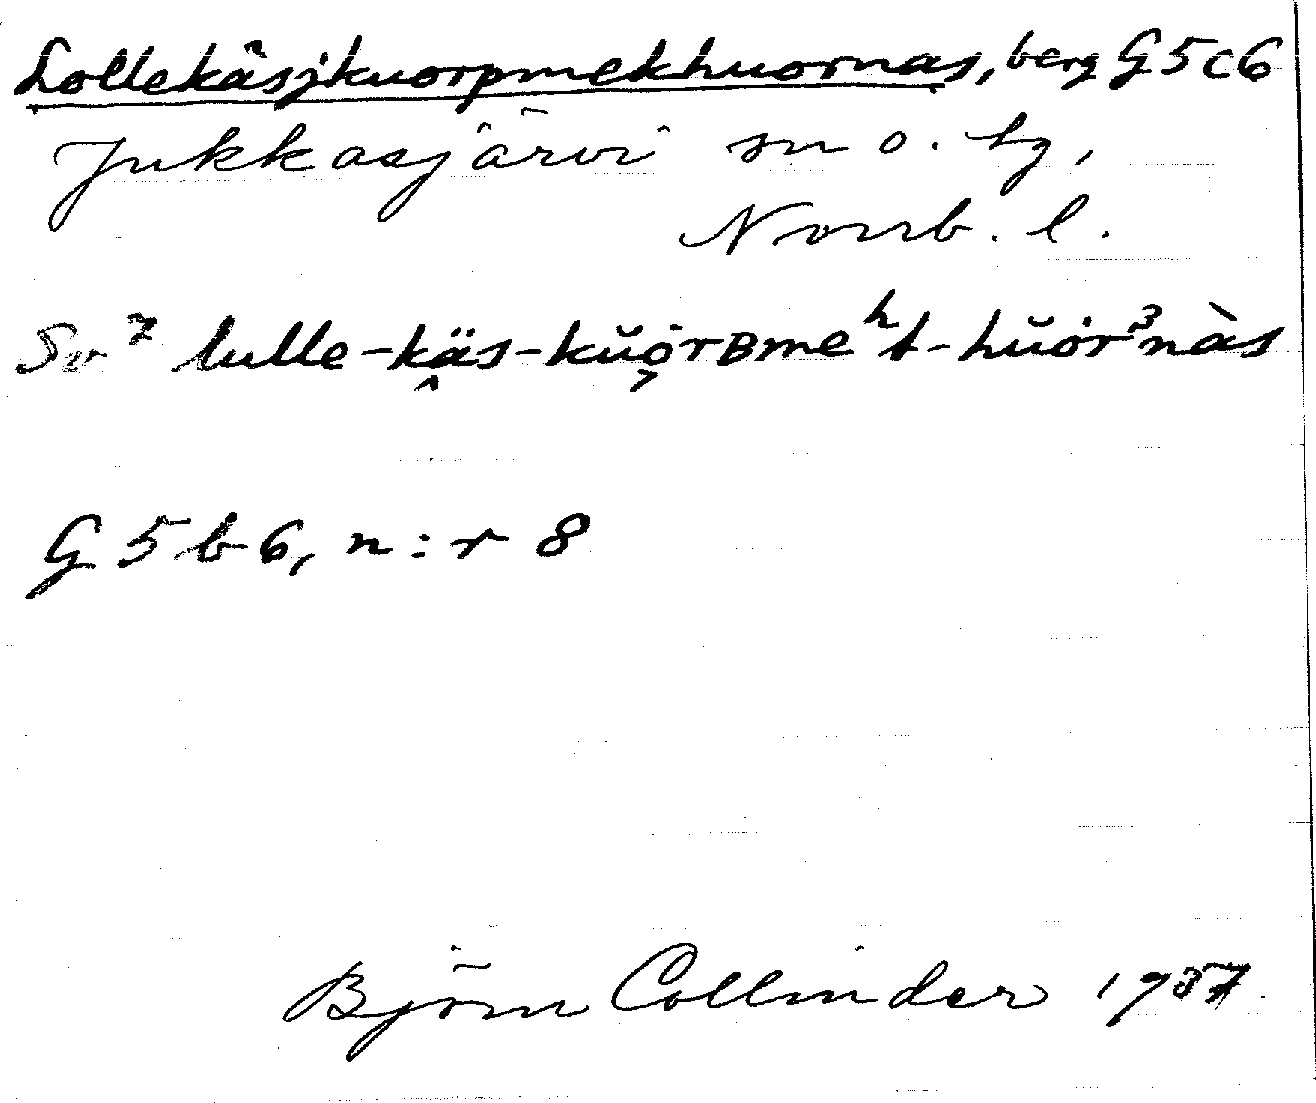 Lollekäsjkuorpmekhuornas, berg G5c6
Jukkasjärvi sn o. tg,
Norrb. l.
Sv⁷ lulle-kä̭s-kŭo̭rʙmeʰt-hŭȯr³nàs
G 5 b 6, n:r 8
Björn Collinder 1937